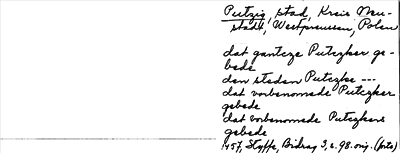 Putzig, stad, Kreis Neu-
stadt, Westpreussen, Polen
dat gantcze Putczker ge-
bede
den steden Putczke ---
dat vorbenomede Putczker
gebede
dat vorbenomede Putczkers
gebede
1457, Styffe, Bidrag 3, s. 98. orig. (foto)